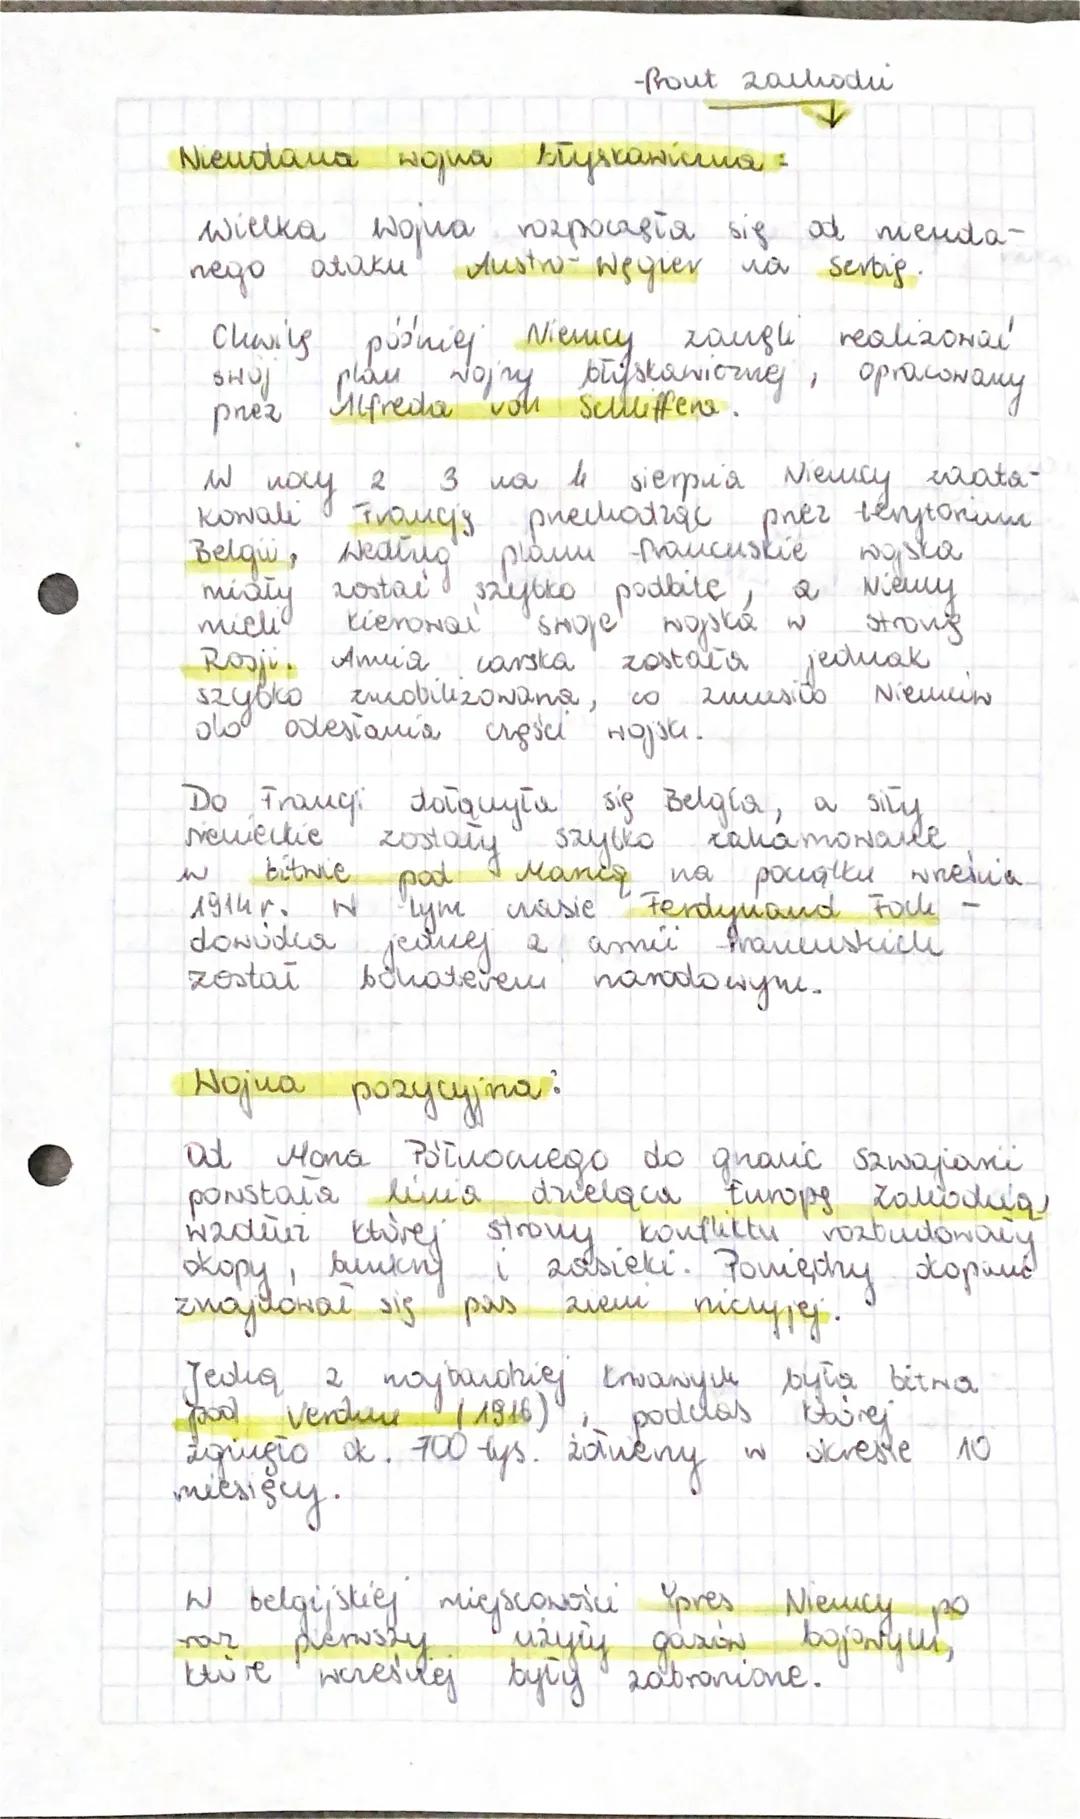 -front zachodni
Nieudana wojna błyskawiczna:
Wielka Wojna rozpoczęła się od nieuda-
nego ataku Austro-Węgier na Serbię.
Chwilę później Niemcy zaczęli realizować
swój plan wojny błyskawicznej, opracowany
przez Alfreda von Schlieffena.
W nocy z 3 na 4 sierpnia Niemcy zaata-
kowali Francję przechodząc przez terytorium
Belgii, według planu francuskie wojska
miały zostać szybko podbite, a Niemcy
mieli kierować swoje wojska w stronę
Rosji. Armia carska została jednak
szybko zmobilizowana, co zmusiło Niemców
do odesłania części wojsk.
Do Francji dołączyła się Belgia, a siły
niemieckie zostały szybko zahamowane
w bitwie pod Marną na początku września
1914r. W tym czasie Ferdynand Foch -
dowódca jednej z armii francuskich
został bohaterem narodowym.
Wojna pozycyjna:
Od Morza Północnego do granic Szwajcarii
powstała linia dzieląca Europę Zachodnią,
wzdłuż której strony konfliktu rozbudowały
okopy, bunkry i zasieki. Pomiędzy okopami
znajdował się pas ziemi niczyjej.
Jedną z najbardziej krwawych była bitwa
pod Verdun (1916), podczas której
zginęło ok. 700 tys. żołnierzy w okresie 10
miesięcy.
W belgijskiej miejscowości Ypres Niemcy po
raz pierwszy użyły gazów bojowych,
które wcześniej były zabronione.